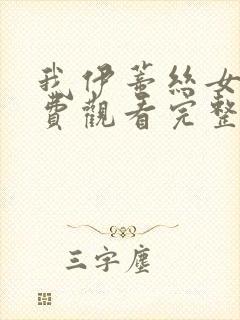 我伊蒂絲女
費觀看完整
三字塵